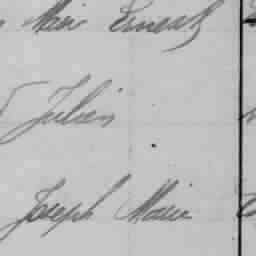 Marie Ernest
Julien
Joseph Marie